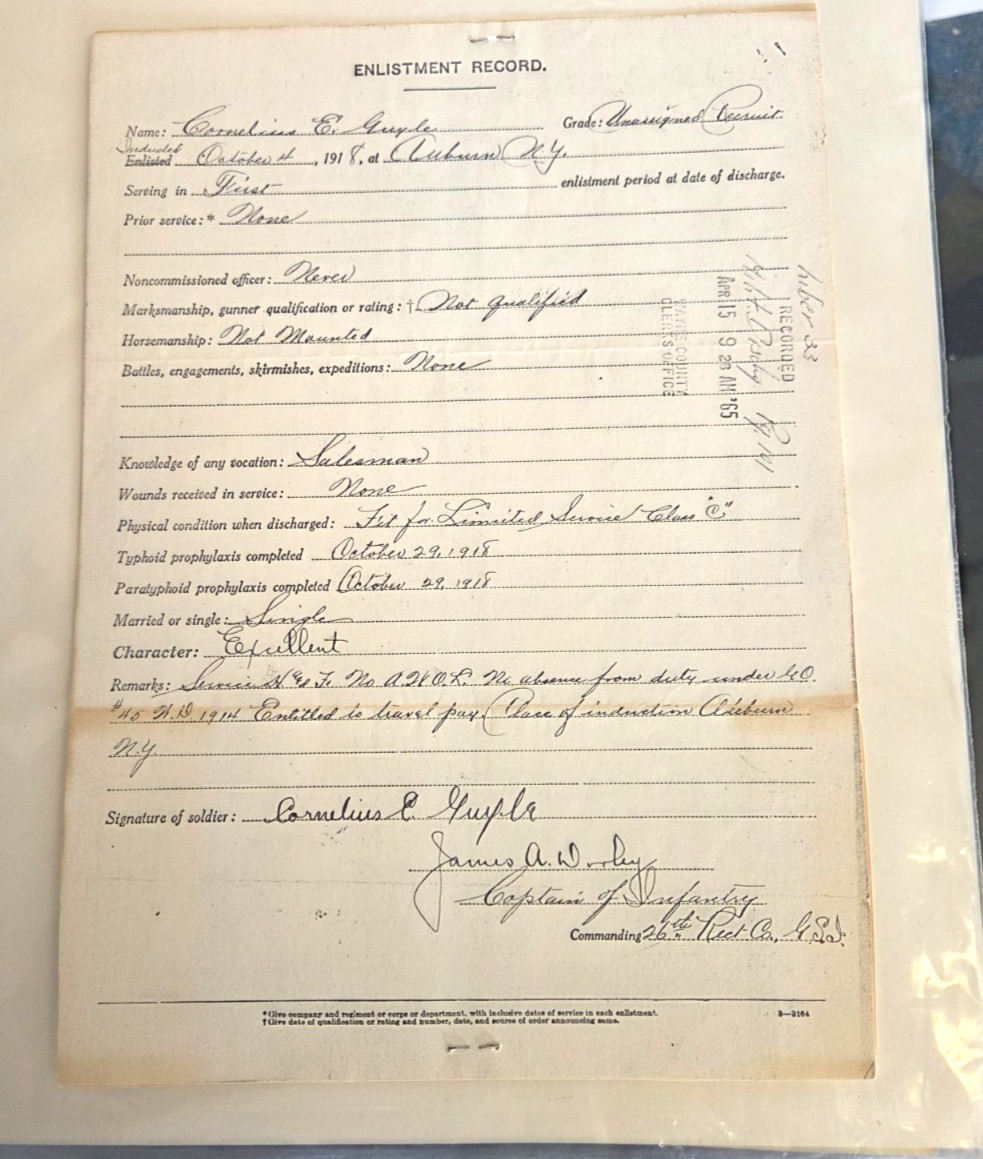 ENLISTMENT RECORD.
Name: Cornelius E. Guyle Grade: Unassigned Recruit.
Inducted
Enlisted October 4, 1918, at Auburn N.Y.
Serving in First enlistment period at date of discharge.
Prior service:* None
Noncommissioned officer: Never
Marksmanship, gunner qualification or rating:† Not qualified
Horsemanship: Not Mounted
Battles, engagements, skirmishes, expeditions: None
Knowledge of any vocation: Salesman
Wounds received in service: None
Physical condition when discharged: Fit for Limited Service Class "C"
Typhoid prophylaxis completed October 29, 1918
Paratyphoid prophylaxis completed October 29, 1918
Married or single: Single
Character: Excellent
Remarks: Service No A.W.O.L. No absence from duty under G.O.
#45 W.D. 1914 Entitled to travel pay. Place of induction Auburn
N.Y.
Signature of soldier: Cornelius E. Guyle
James A. Worley
Captain of Infantry
Commanding 26th Rect Co., G.S.I.
*Give company and regiment or corps or department, with inclusive dates of service in each enlistment.
†Give date of qualification or rating and number, date, and source of order announcing same.
3—3164
Liber 33
RECORDED
APR 15 9 23 AM '65
COUNTY
CLERK'S OFFICE